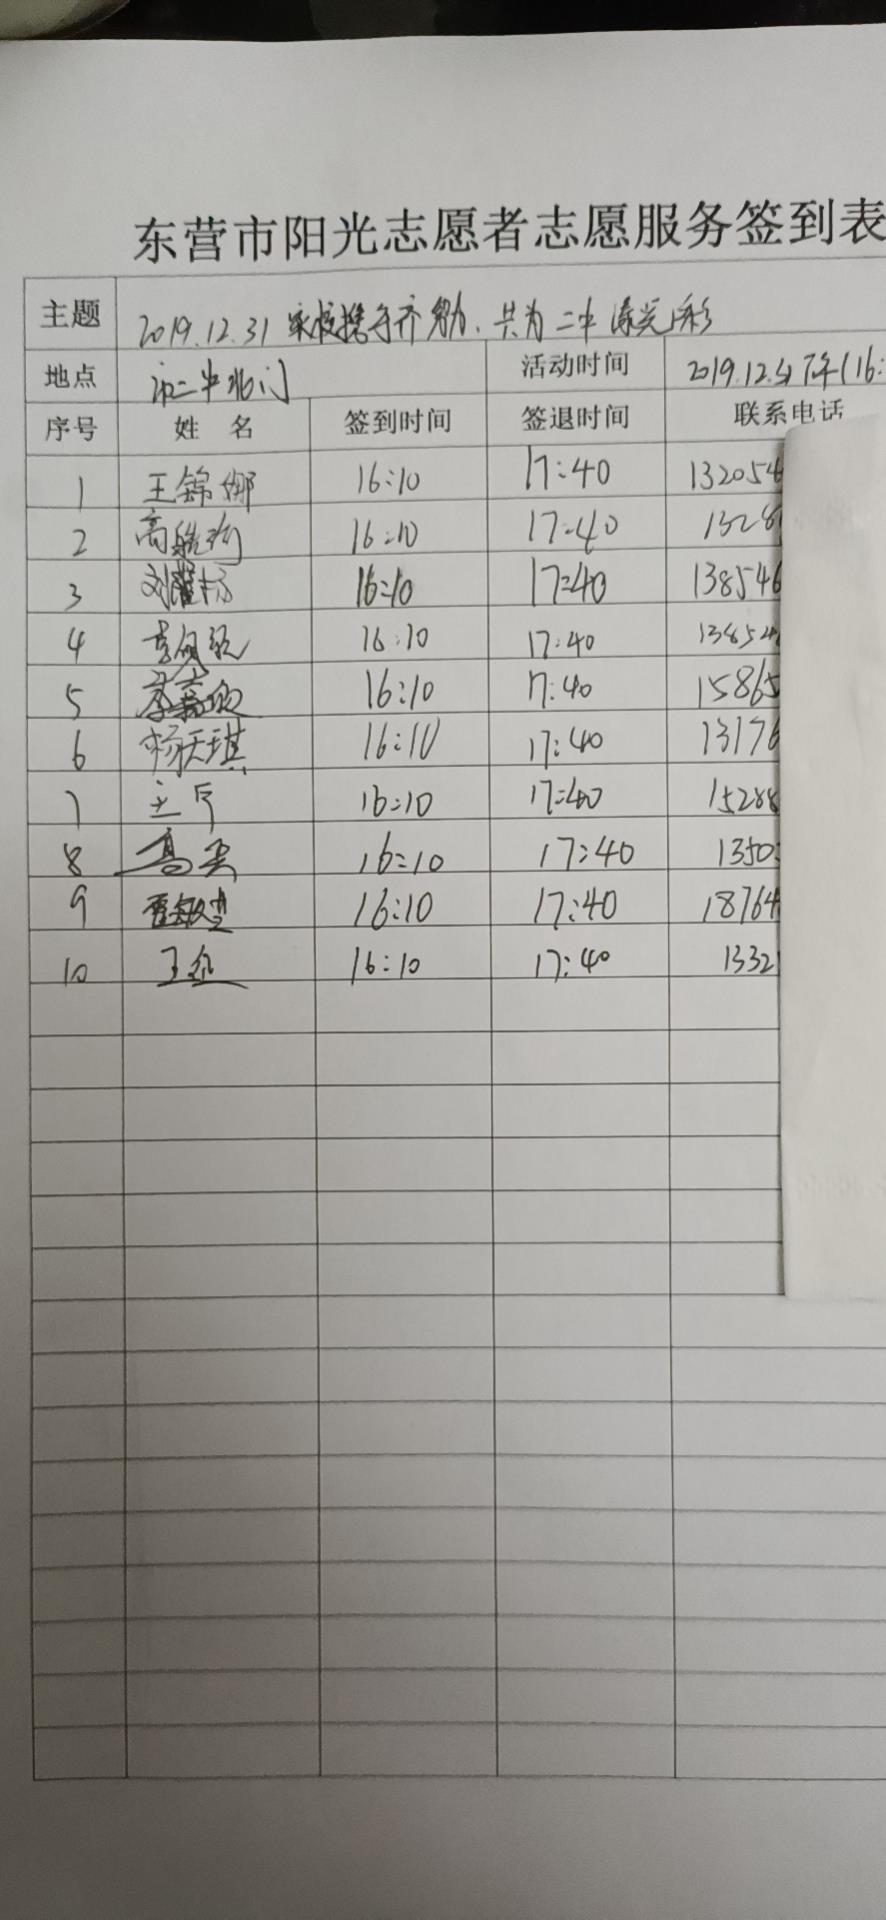 东营市阳光志愿者志愿服务签到表
主题 2019.12.31 家校携手齐努力、共为二中添光彩
地点 市二中北门 活动时间 2019.12.31下午(16:
序号 姓 名 签到时间 签退时间 联系电话
1 王锦娜 16:10 17:40 132054
2 16:10 17:40 1328
3 16:10 17:40 138546
4 16:10 17:40 138546
5 16:10 17:40 15865
6 杨天琪 16:10 17:40 13176
7 16:10 17:40 15288
8 16:10 17:40 1350
9 16:10 17:40 18764
10 16:10 17:40 1332